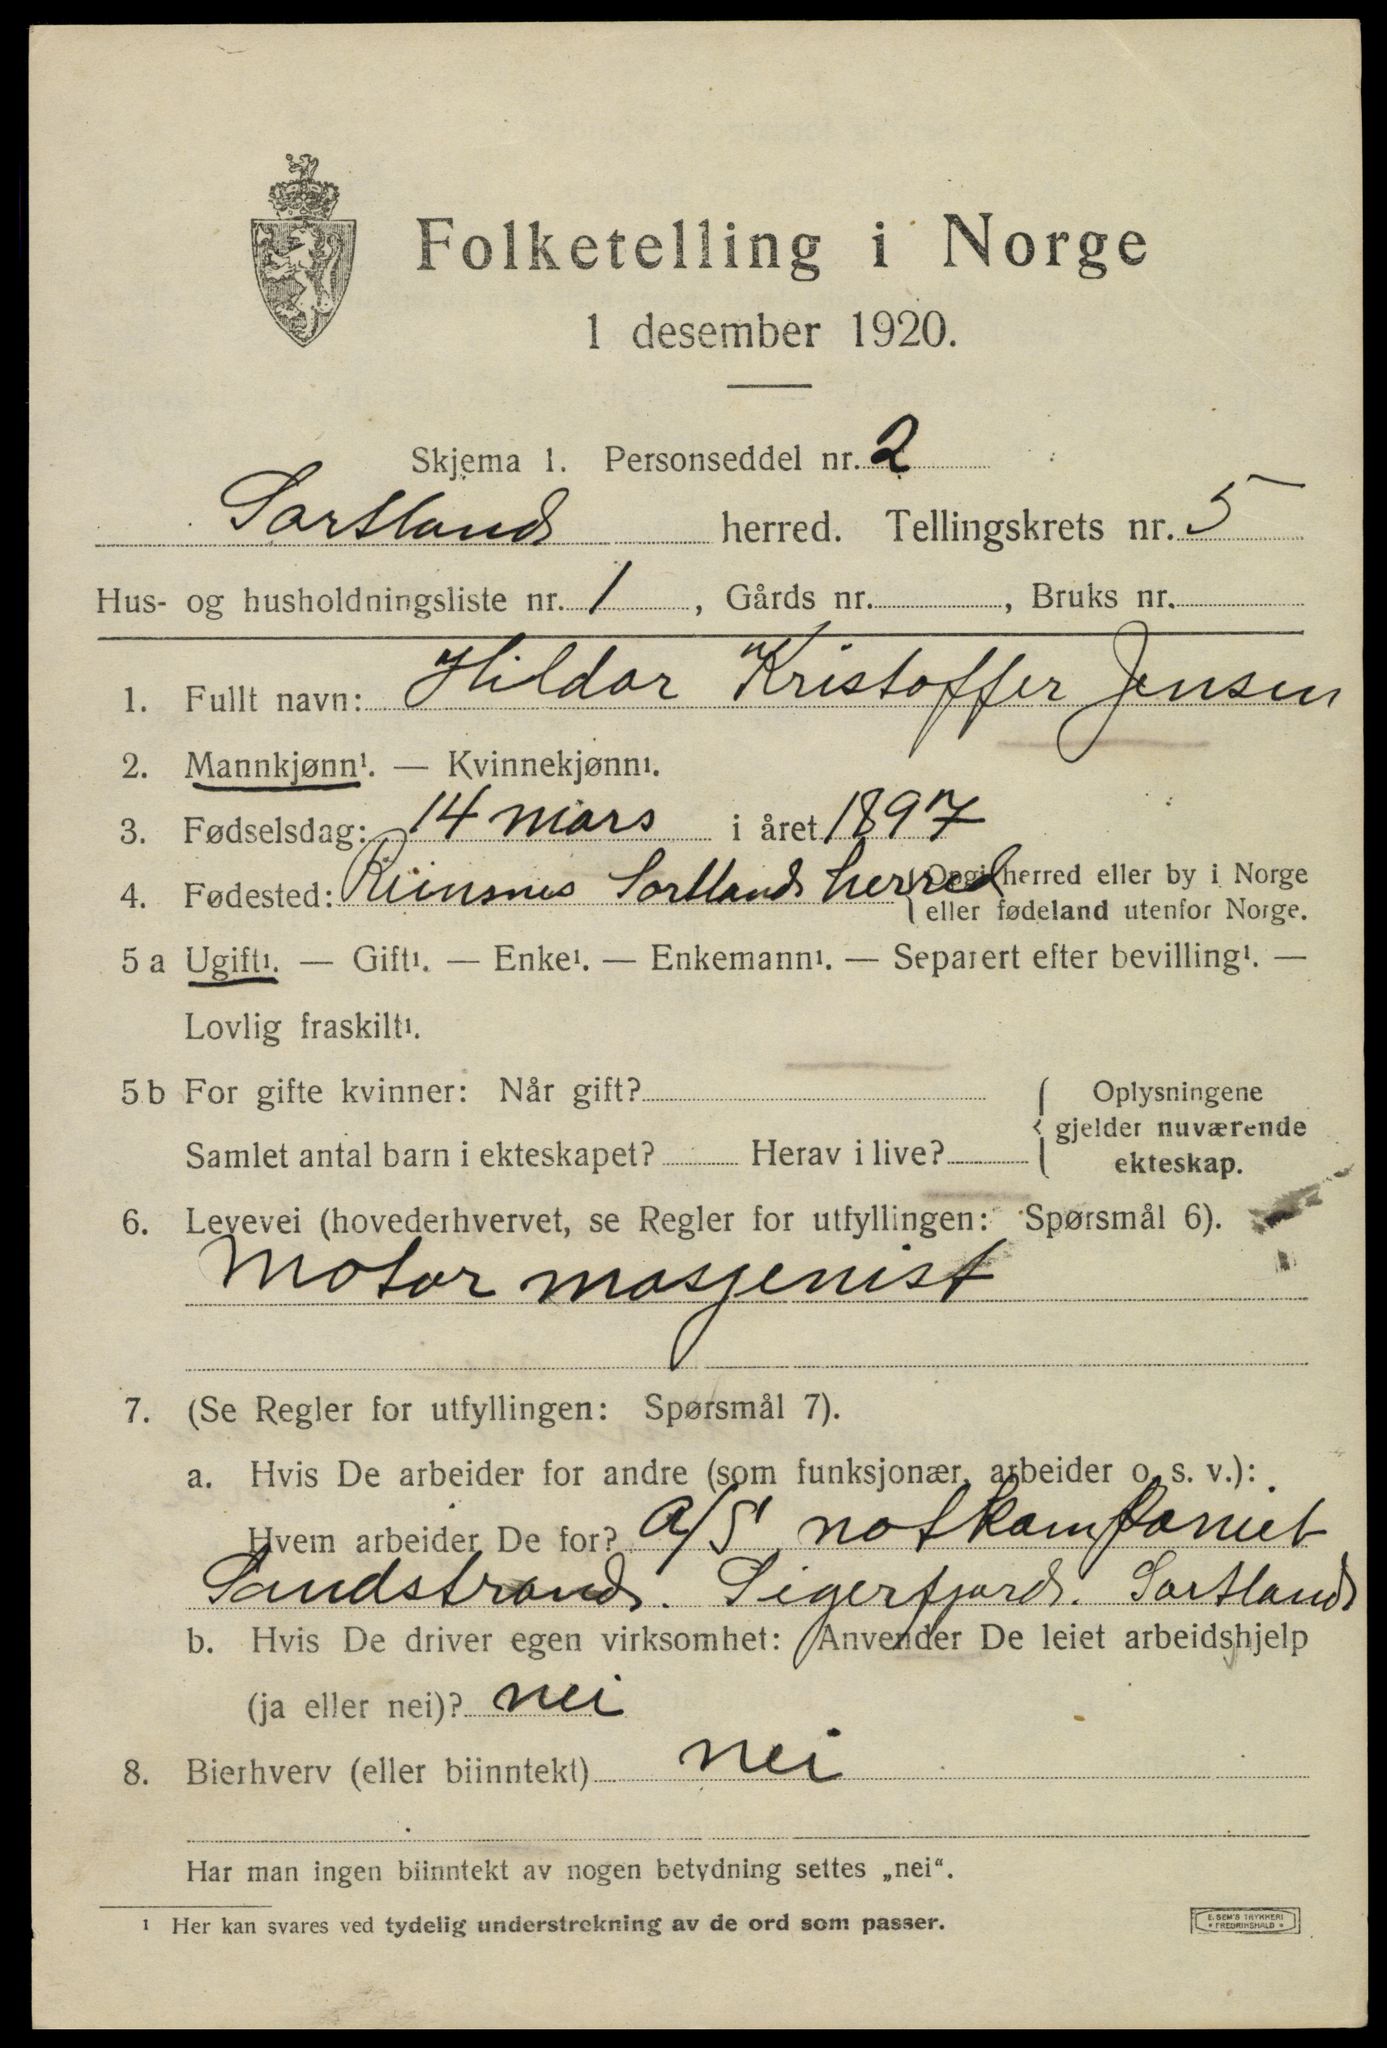 Folketelling i Norge
1 desember 1920.
Skjema 1. Personseddel nr. 2
Sortland herred. Tellingskrets nr. 5
Hus- og husholdningsliste nr. 1, Gårds nr. , Bruks nr.
1. Fullt navn: Hildor Kristoffer Jensen
2. Mannkjønn¹. — Kvinnekjønn¹.
3. Fødselsdag: 14 mars i året 1897
4. Fødested: Reinsnes Sortlands herred { Opgi herred eller by i Norge
eller fødeland utenfor Norge.
5 a Ugift¹. — Gift¹. — Enke¹. — Enkemann¹. — Separert efter bevilling¹. —
Lovlig fraskilt¹.
5 b For gifte kvinner: Når gift? { Oplysningene
gjelder nuværende
Samlet antal barn i ekteskapet? Herav i live? ekteskap.
6. Levevei (hovederhvervet, se Regler for utfyllingen: Spørsmål 6).
Motor masjenist
7. (Se Regler for utfyllingen: Spørsmål 7).
a. Hvis De arbeider for andre (som funksjonær, arbeider o. s. v.):
Hvem arbeider De for? A/S notkompaniet
Sandstrand. Sigerfjord. Sortland
b. Hvis De driver egen virksomhet: Anvender De leiet arbeidshjelp
(ja eller nei)? nei
8. Bierhverv (eller biinntekt) nei
Har man ingen biinntekt av nogen betydning settes „nei“.
¹ Her kan svares ved tydelig understrekning av de ord som passer.
E. SEM'S TRYKKERI
* FREDRIKSHALD *